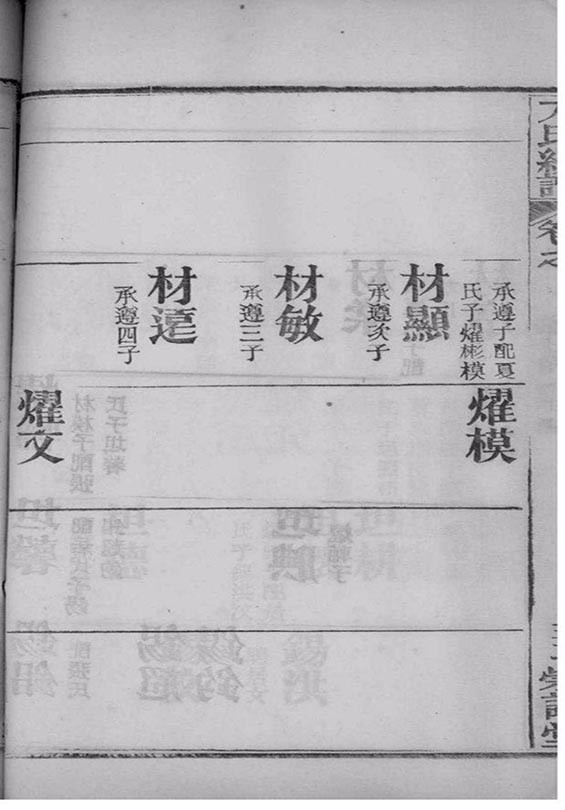 卷之
承遵子配夏
氏子燿彬模
材顯
承遵次子
材敏
承遵三子
材逺
承遵四子
燿模
燿文